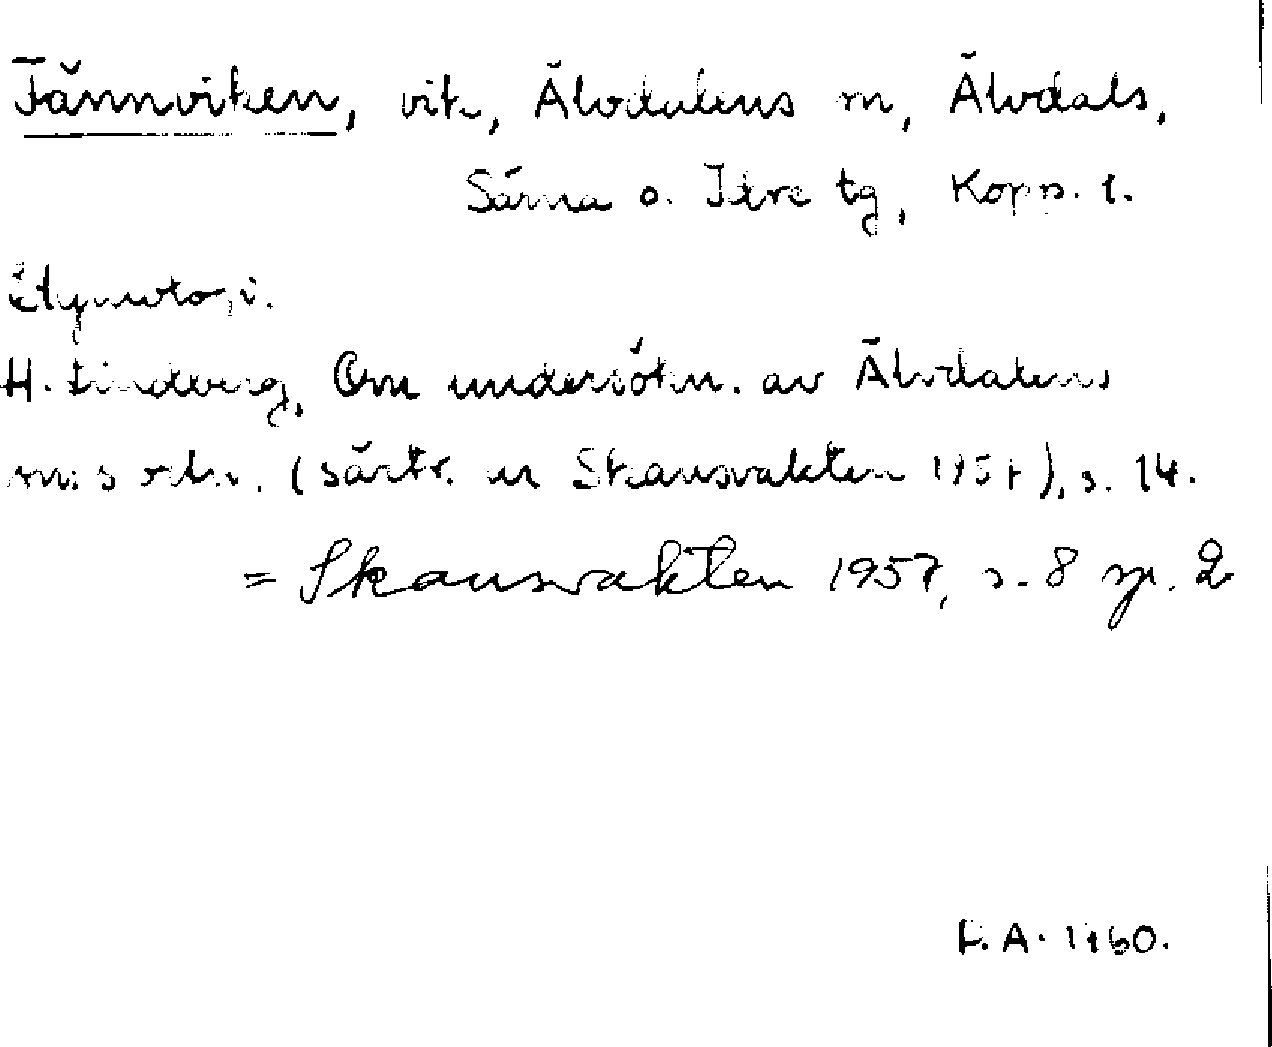 Jännviken, vik, Älvdalens m, Älvdals,
Särna o. Idre tg, Kopp. l.
Etymologi.
H. Lindberg, Om undersökn. av Älvdalens
m:s ortn. (särtr. ur Skansvakten 1957), s. 14.
= Skansvakten 1957, s. 8 sp. 2
F. A. 1960.